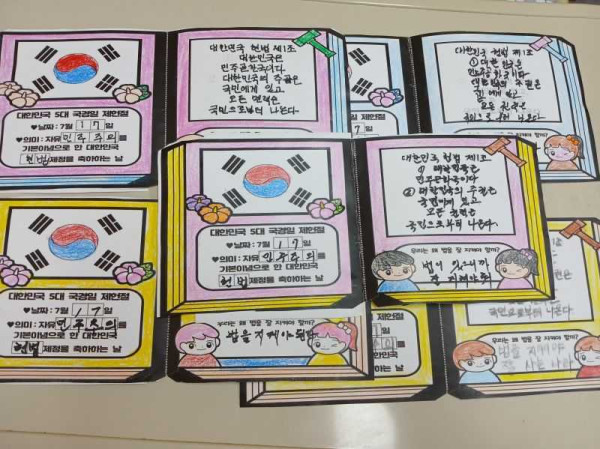 대한민국 5대 국경일 제헌절
♥날짜 : 7월 17일
♥의미 : 자유민주주의를
기본이념으로 한 대한민국
헌법제정을 축하하는 날
대한민국 헌법 제1조
대한민국은
민주공화국이다.
대한민국의 주권은
국민에게 있고
모든 권력은
국민으로부터 나온다.
대한민국 헌법 제1조
① 대한민국은
대한민국의 주권은
국민에게 있고
모든 권력은
나온다
대한민국 5대 국경일 제헌절
♥날짜 : 7월 17일
♥의미 : 자유민주주의를
기본이념으로 한 대한민국
헌법제정을 축하하는 날
대한민국 헌법 제1조
① 대한민국은
② 대한민국의 주권은
국민에게 있고
모든 권력은
국민으로부터 나온다.
우리는 왜 법을 잘 지켜야 할까?
법이 있으니까
잘 지켜야해
대한민국 5대 국경일 제헌절
♥날짜 : 7월 17일
♥의미 : 자유민주주의를
기본이념으로 한 대한민국
헌법제정을 축하하는 날
우리는 왜 법을 잘 지켜야 할까?
법을 지켜야 된다
국민으로부터 나온다
우리는 왜 법을 잘 지켜야 할까?
법을 지켜야
잘 사는 나라